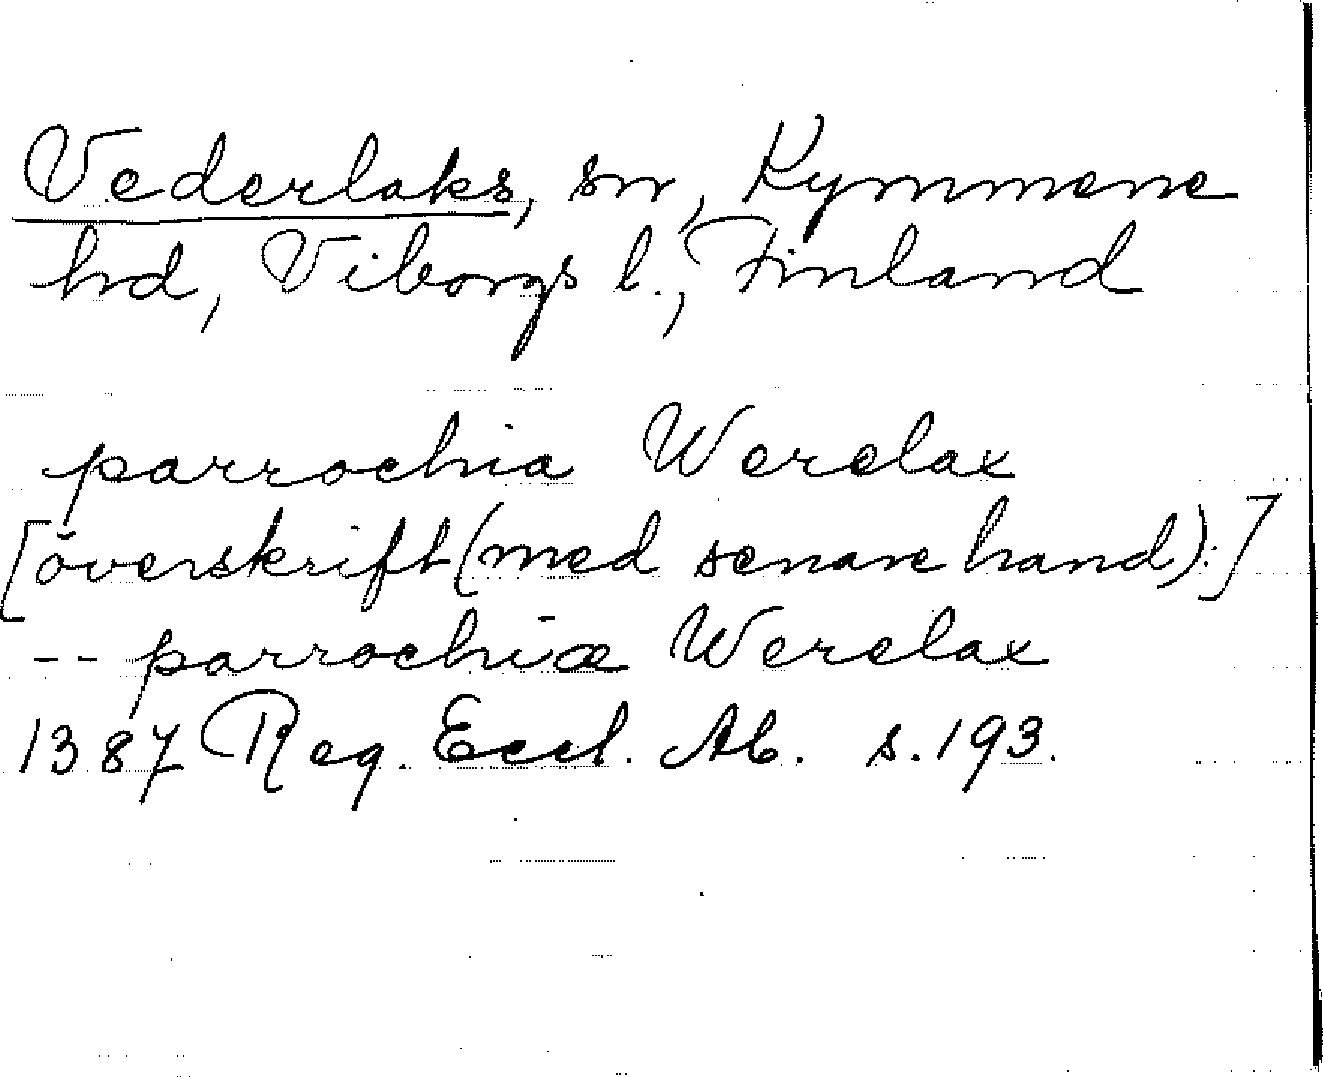 Vederlaks, sn, Kymmene
hd, Viborgs l., Finland
parrochia Werelax
[överskrift (med senare hand):]
-- parrochiæ Werelax
1387 Reg. Eccl. Ab. s. 193.